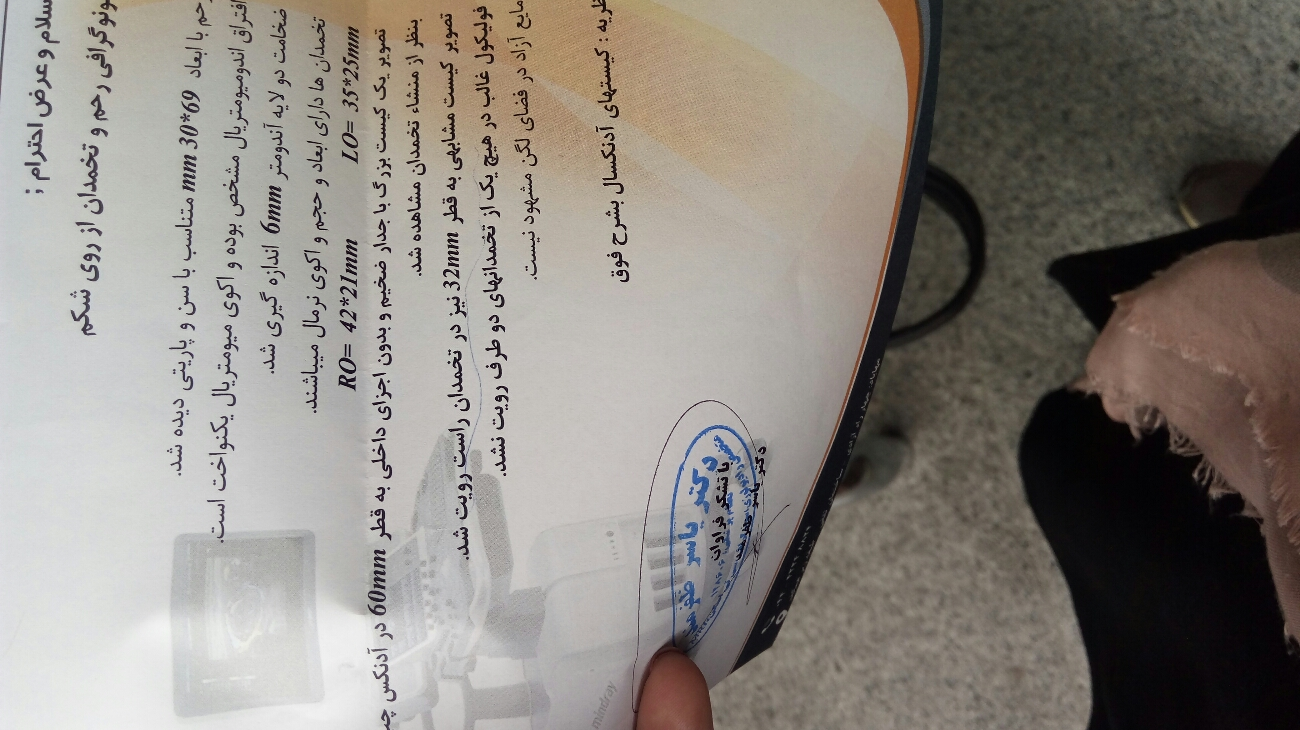 سلام و عرض احترام ;
ونوگرافی رحم و تخمدان از روی شکم
رحم با ابعاد 69*30 mm متناسب با سن و پاریتی دیده شد.
افتراق اندومیومتریال مشخص بوده و اکوی میومتریال یکنواخت است.
ضخامت دو لایه آندومتر 6mm اندازه گیری شد.
تخمدان ها دارای ابعاد و حجم و اکوی نرمال میباشند.
RO= 42*21mm LO= 35*25mm
تصویر یک کیست بزرگ با جدار ضخیم و بدون اجزای داخلی به قطر 60mm در آدنکس چپ
بنظر از منشاء تخمدان مشاهده شد.
تصویر کیست مشابهی به قطر 32mm نیز در تخمدان راست رویت شد.
فولیکول غالب در هیچ یک از تخمدانهای دو طرف رویت نشد.
مایع آزاد در فضای لگن مشهود نیست.
ظریه : کیستهای آدنکسال بشرح فوق
با تشکر فراوان
دکتر یاسر
دکتر یاسر
mindray